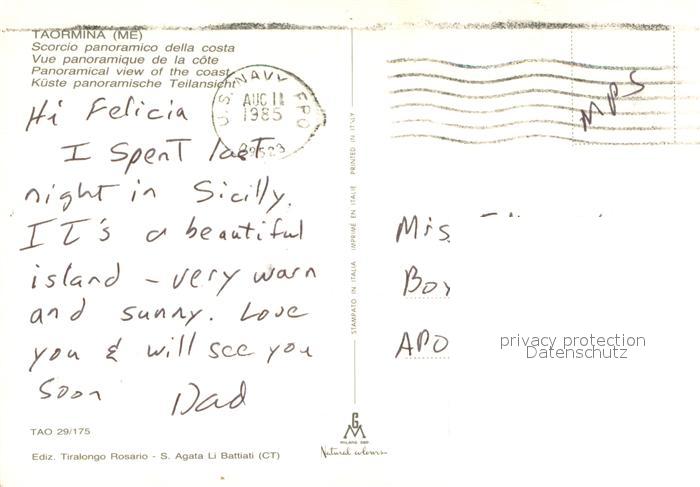 TAORMINA (ME)
Scorcio panoramico della costa
Vue panoramique de la côte
Panoramical view of the coast
Küste panoramische Teilansicht
U.S. NAVY FPO
AUG 11
1985
MPS
Hi Felicia
I Spent last
night in Sicilly.
IT's a beautiful
island - very warn
and sunny. Love
you & will see you
Soon Dad
STAMPATO IN ITALIA IMPRIMÉ EN ITALIE PRINTED IN ITALY
Mis
Box
APO
privacy protection
Datenschutz
TAO 29/175
Ediz. Tiralongo Rosario - S. Agata Li Battiati (CT)
GM
Natural colours